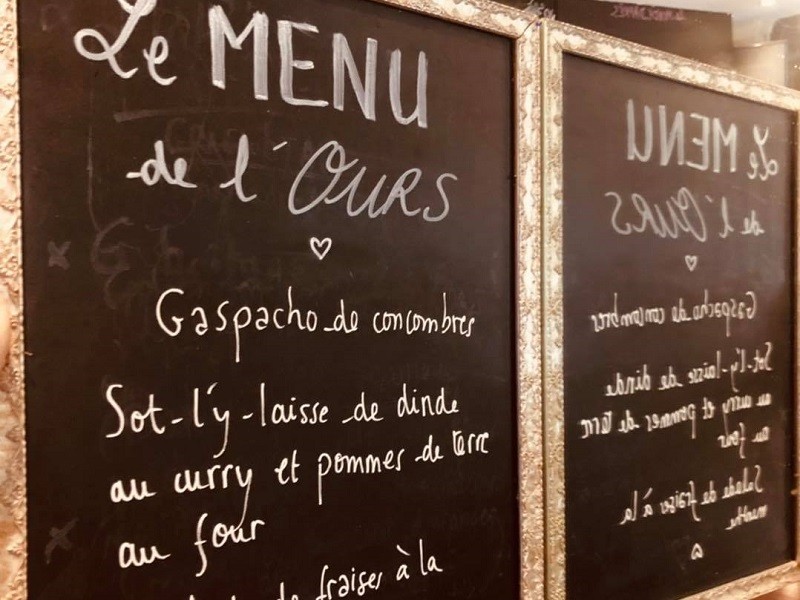 Le MENU
de l'OURS
Gaspacho de concombres
Sot-l'y-laisse de dinde
au curry et pommes de terre
au four
de fraises à la
Le MENU
de l'OURS
Gaspacho de concombres
Sot-l'y-laisse de dinde
au curry et pommes de terre
au four
Salade de fraises à la
menthe